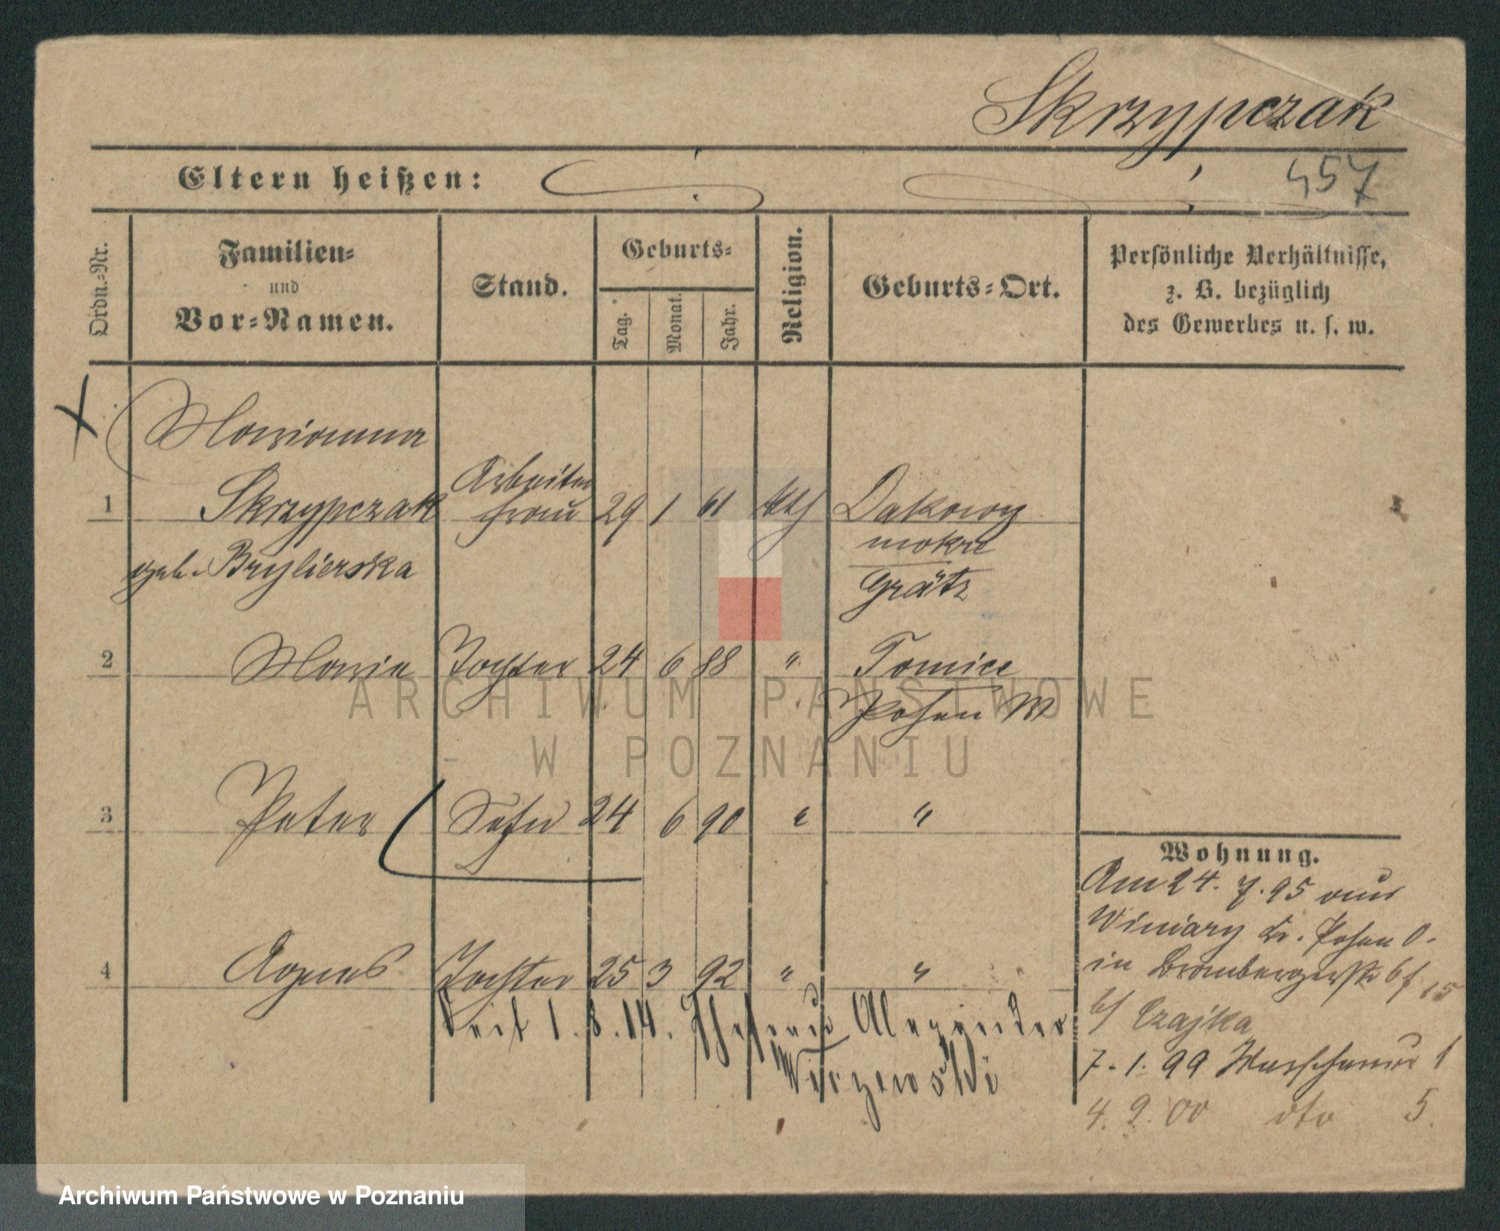 Skrzypczak
457
Eltern heißen:
Ordn.-Nr.
Familien-
und
Vor-Namen.
Stand.
Geburts-
Tag.
Monat.
Jahr.
Religion.
Geburts-Ort.
Persönliche Verhältnisse,
z. B. bezüglich
des Gewerbes u. s. w.
Marianna
1 Skrzypczak Arbeiter 29 1 61 kth Dakowy
frau mokre
geb. Brylierska Grätz
2 Marie Tochter 24 6 88 " Tomice
Posen W
3 Peter Sohn 24 6 90 " "
4 Agnes Tochter 25 3 92 " "
seit 1.8.14. Ehefrau Alexander
Wirzewski
Wohnung.
Am 24.7.95 aus
Winiary Kr. Posen O.
in Brombergerstr 6f 15
b/ Czajka
7.1.99 Warschauer 1
4.9.00 dto 5.
ARCHIWUM PAŃSTWOWE
W POZNANIU
Archiwum Państwowe w Poznaniu